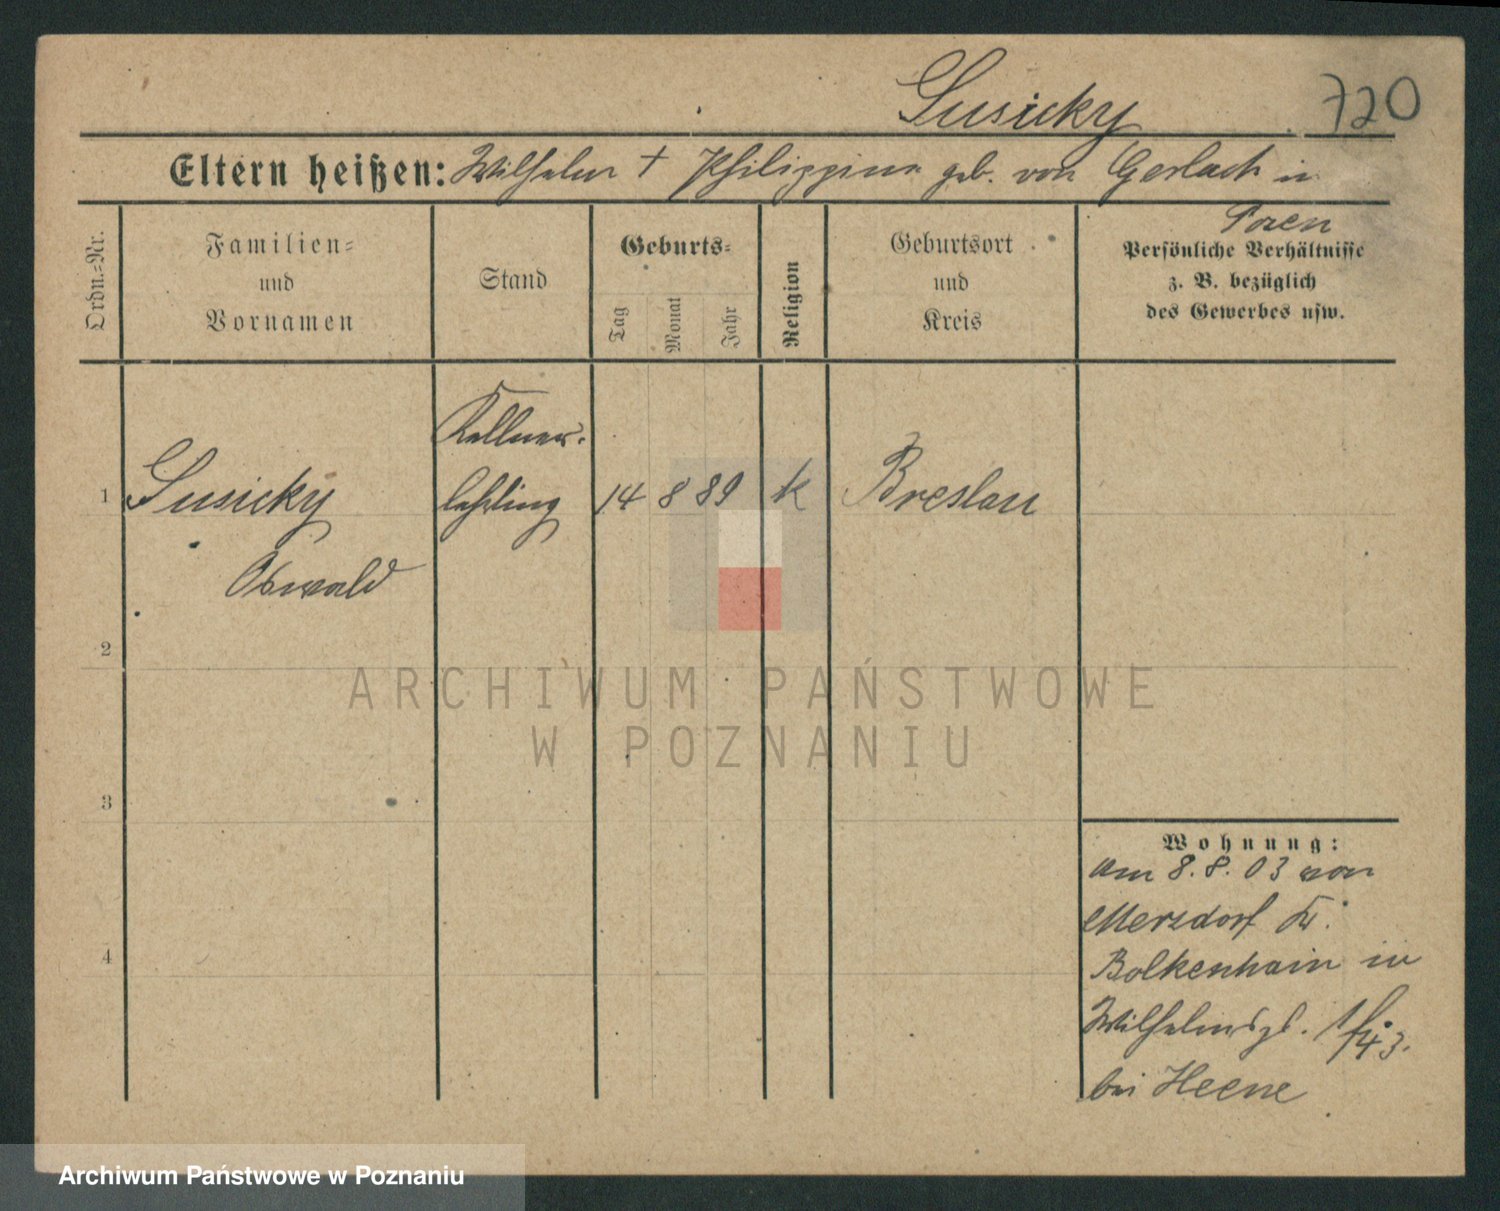 Susicky
720
Eltern heißen: Wilhelm † Philippine geb. von Gerlach in
Posen
Ordn.-Nr.
Familien-
und
Vornamen
Stand
Geburts-
Tag
Monat
Jahr
Religion
Geburtsort
und
Kreis
Persönliche Verhältnisse
z. B. bezüglich
des Gewerbes usw.
1
Susicky
Oswald
Kellner-
lehrling
14 8 89
k
Breslau
2
3
4
Wohnung:
am 8.8.03 von
Merzdorf Kr.
Bolkenhain in
Wilhelmspl.
bei Heene
ARCHIWUM PAŃSTWOWE
W POZNANIU
Archiwum Państwowe w Poznaniu